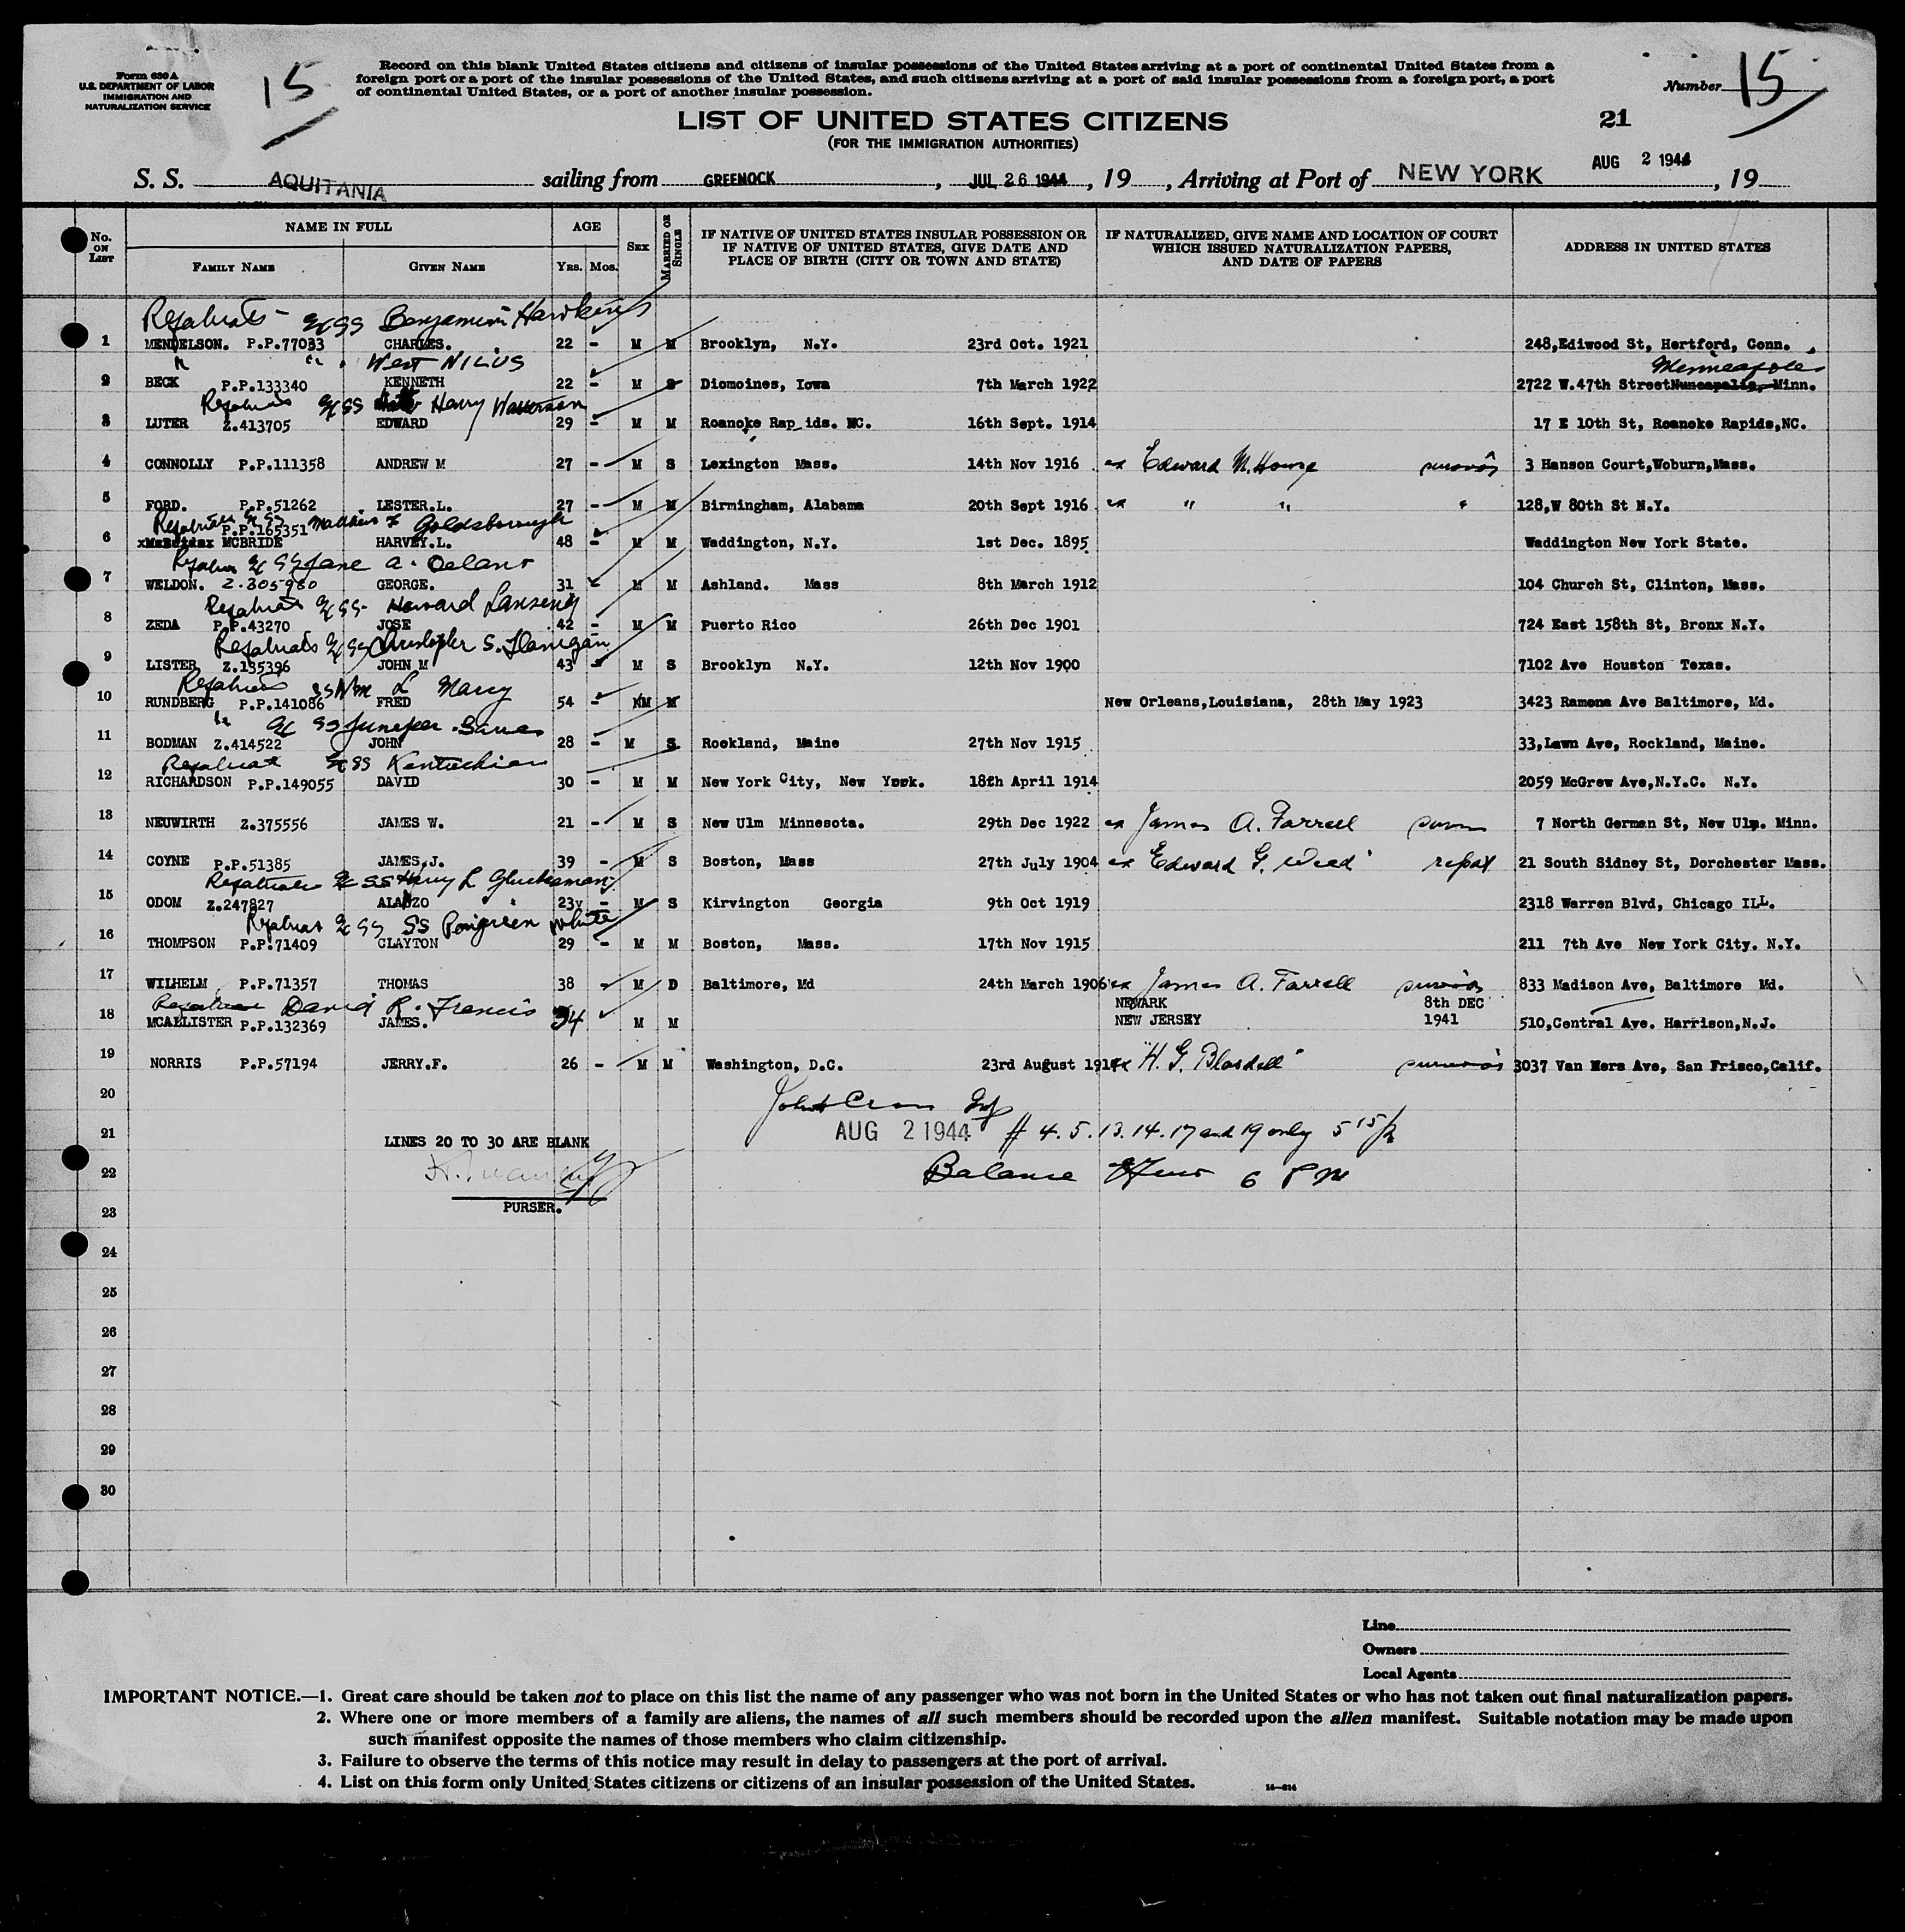 Form 630 A
U.S. DEPARTMENT OF LABOR
IMMIGRATION AND
NATURALIZATION SERVICE
15
Record on this blank United States citizens and citizens of insular possessions of the United States arriving at a port of continental United States from a
foreign port or a port of the insular possessions of the United States, and such citizens arriving at a port of said insular possessions from a foreign port, a port
of continental United States, or a port of another insular possession.
Number 15
LIST OF UNITED STATES CITIZENS
(FOR THE IMMIGRATION AUTHORITIES)
21
S. S. AQUITANIA sailing from GREENOCK, JUL 26 1944, 19, Arriving at Port of NEW YORK AUG 2 1944, 19
No. ON LIST
NAME IN FULL
FAMILY NAME GIVEN NAME
AGE
YRS. MOS.
SEX
MARRIED OR SINGLE
IF NATIVE OF UNITED STATES INSULAR POSSESSION OR
IF NATIVE OF UNITED STATES, GIVE DATE AND
PLACE OF BIRTH (CITY OR TOWN AND STATE)
IF NATURALIZED, GIVE NAME AND LOCATION OF COURT
WHICH ISSUED NATURALIZATION PAPERS,
AND DATE OF PAPERS
ADDRESS IN UNITED STATES
Benjamin Hawkins
1 MENDELSON. P.P.77033 CHARLES. 22 - M M Brooklyn, N.Y. 23rd Oct. 1921 248,Ediwood St, Hertford, Conn.
" " West NILUS
Minneapolis
2 BECK P.P.133340 KENNETH 22 - M S Diomoines, Iowa 7th March 1922 2722 W.47th Street Minn.
SS Harry
3 LUTER Z.413705 EDWARD 29 - M M Roanoke Rap_ids. NC. 16th Sept. 1914 17 E 10th St, Roanoke Rapids,NC.
4 CONNOLLY P.P.111358 ANDREW M 27 - M S Lexington Mass. 14th Nov 1916 ex Edward M. House 3 Hanson Court,Woburn,Mass.
5 FORD. P.P.51262 LESTER.L. 27 - M M Birmingham, Alabama 20th Sept 1916 ex " " " 128,W 80th St N.Y.
Goldsborough
P.P.165351
6 MCBRIDE HARVEY.L. 48 - M M Waddington, N.Y. 1st Dec. 1895 Waddington New York State.
SS Jane A. Delano
7 WELDON. Z.305980 GEORGE. 31 M M Ashland. Mass 8th March 1912 104 Church St, Clinton, Mass.
SS Howard Lansing
8 ZEDA P.P.43270 JOSE 42 - M M Puerto Rico 26th Dec 1901 724 East 158th St, Bronx N.Y.
SS Christopher S. Flanigan
9 LISTER Z.135396 JOHN M 43 - M S Brooklyn N.Y. 12th Nov 1900 7102 Ave Houston Texas.
SS Wm L Marcy
10 RUNDBERG P.P.141086 FRED 54 - M M New Orleans,Louisiana, 28th May 1923 3423 Ramona Ave Baltimore, Md.
11 BODMAN Z.414522 JOHN 28 - M S Rockland, Maine 27th Nov 1915 33,Lawn Ave, Rockland, Maine.
SS Kentuckian
12 RICHARDSON P.P.149055 DAVID 30 - M M New York City, New York. 18th April 1914 2059 McGrew Ave,N.Y.C. N.Y.
13 NEUWIRTH Z.375556 JAMES W. 21 - M S New Ulm Minnesota. 29th Dec 1922 ex James A. Farrell 7 North German St, New Ulm. Minn.
14 COYNE P.P.51385 JAMES.J. 39 - M S Boston, Mass 27th July 1904 ex Edward G. repat 21 South Sidney St, Dorchester Mass.
SS Harry L Glucksman
15 ODOM Z.247827 ALANZO 23y - M S Kirvington Georgia 9th Oct 1919 2318 Warren Blvd, Chicago ILL.
SS White
16 THOMPSON P.P.71409 CLAYTON 29 - M M Boston, Mass. 17th Nov 1915 211 7th Ave New York City. N.Y.
17 WILHELM P.P.71357 THOMAS 38 - M D Baltimore, Md 24th March 1906 ex James A. Farrell 833 Madison Ave, Baltimore Md.
David R. Francis
NEWARK 8th DEC
18 MCALLISTER P.P.132369 JAMES. 34 M M NEW JERSEY 1941 510,Central Ave. Harrison,N.J.
19 NORRIS P.P.57194 JERRY.F. 26 - M M Washington, D.C. 23rd August 191 ex "H. G. Blasdell" 3037 Van Ners Ave, San Frisco,Calif.
20
21 LINES 20 TO 30 ARE BLANK AUG 2 1944 # 4. 5. 13. 14. 17 and 19 only
22 Balance 6 PM
PURSER.
23
24
25
26
27
28
29
30
Line
Owners
Local Agents
IMPORTANT NOTICE.—1. Great care should be taken not to place on this list the name of any passenger who was not born in the United States or who has not taken out final naturalization papers.
2. Where one or more members of a family are aliens, the names of all such members should be recorded upon the alien manifest. Suitable notation may be made upon
such manifest opposite the names of those members who claim citizenship.
3. Failure to observe the terms of this notice may result in delay to passengers at the port of arrival.
4. List on this form only United States citizens or citizens of an insular possession of the United States.